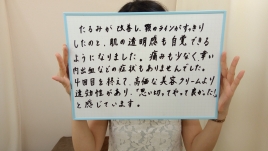 たるみが改善し、顔のラインがすっきり
したのと、肌の透明感も自覚できる
ようになりました。痛みも少なく、幸い
内出血などの症状もありませんでした。
4回目を終えて、高価な美容クリームより
速効性があり、「思い切ってやって良かった!」
と感じています。